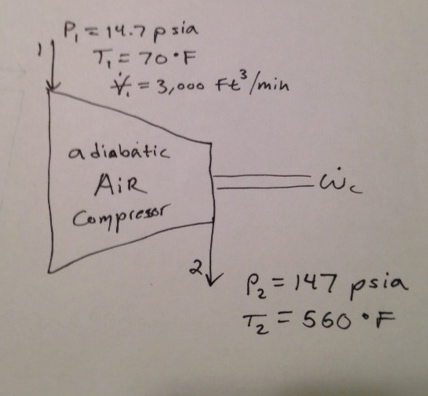 1
P₁ = 14.7 psia
T₁ = 70 °F
V̇₁ = 3,000 Ft³/min
adiabatic
AiR
Compresor
Ẇc
2
P₂ = 147 psia
T₂ = 560 °F